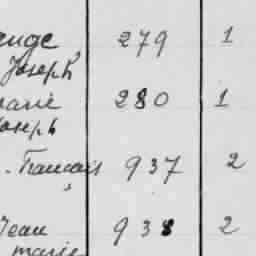 279 1
Joseph
280 1
Joseph
Français 937 2
Jean 938 2
marie